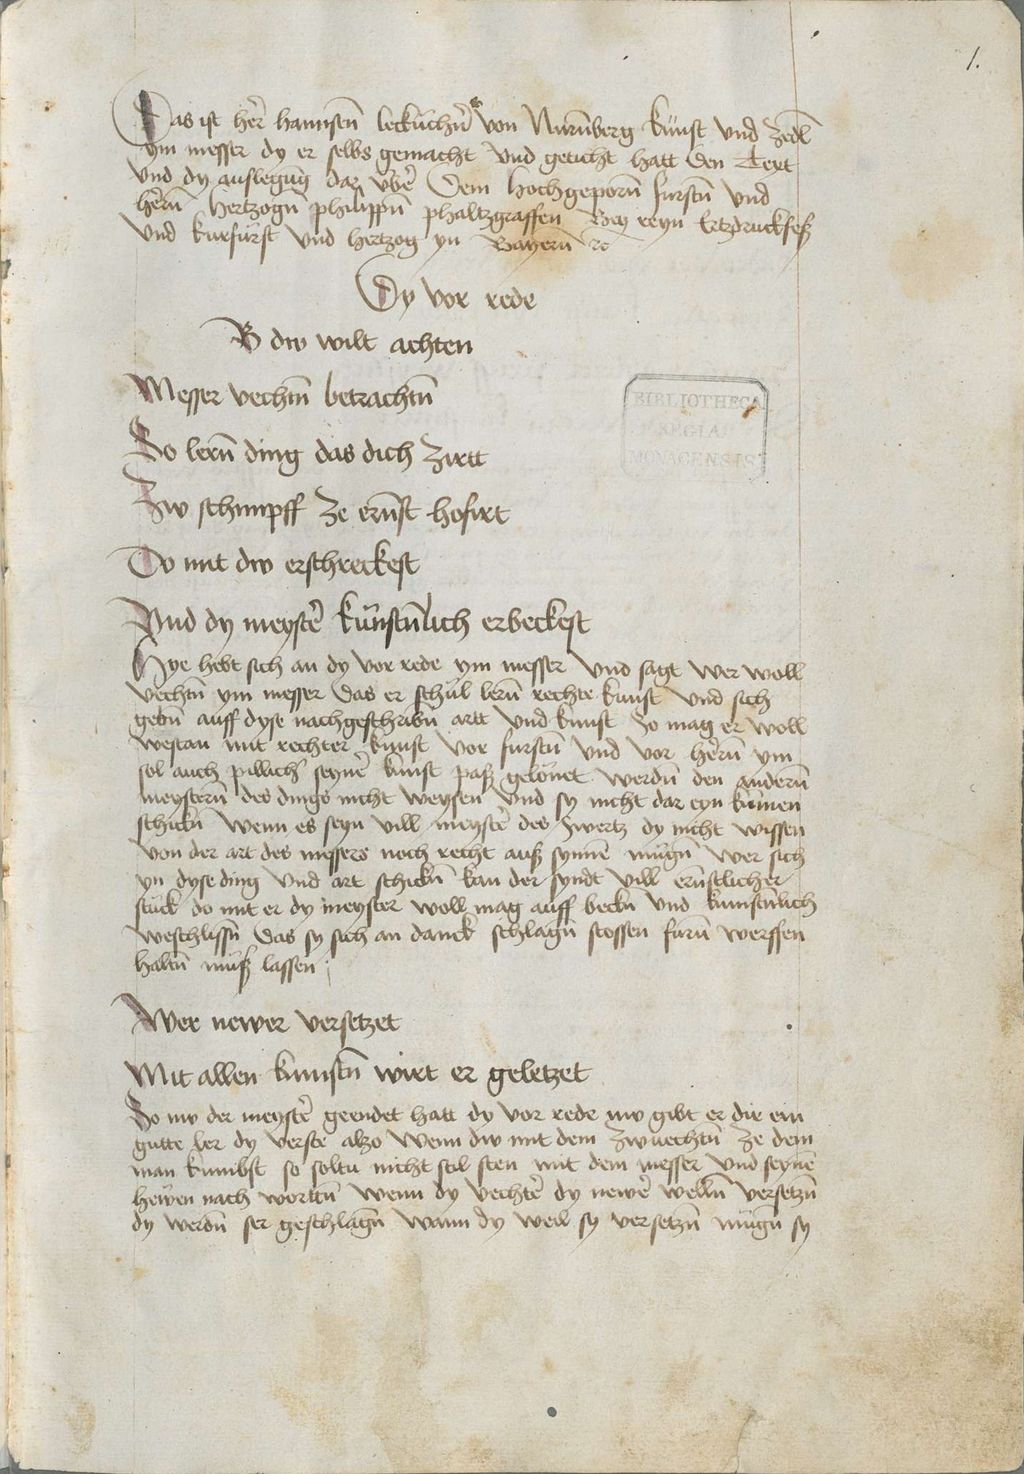 1.
Das ist her hannsen lecküchner von Nurmberg künst vnd zedl
ym messer dy er selbs gemacht vnd geticht hatt den Text
vnd dy auslegung dar vber Dem hochgeporn fursten vnd
hern hertzogn philippn phaltzgraffen Bey reyn Ertzdruckseß
vnd kurfürst vnd hertzog yn Bayern
Dy vor rede
B dw wilt achten
Messer vechtn betrachtn
So lern ding das dich zirtt
Zw schimpff ze ernst hofirt
Do mit dw erschreckest
Vnd dy meyster künstnlich erweckest
Hye hebt sich an dy vor rede ym messer vnd sagt wer woll
vechtn ym messer das er schül lern rechte kunst vnd sich
gebn auff dyse nachgeschribn artt vnd kunst So mag er woll
westan mit rechter kunst vor furstn vnd vor hern ym
sol auch pillich seyner kunst paß gelönet werdn den andern
meystern des dings nicht weysen vnd sy nicht dar eyn kümen
schickn wenn es seyn vill meyster des swertz dy nicht wissen
von der art des messers noch recht auß synnen mügn wer sich
yn dyse ding vnd art schickn kan der syndt vill ernstlicher
stück do mit er dy meyster woll mag auff weckn vnd kunstnlich
weschlissn das sy sich an danck schlagn stossen furn werffen
haltn müß lassen
Wer newer versetzet
Mit allen kunstn wirt er geletzet
So nw der meyster geendet hatt dy vor rede nw gibt er dir ein
gutte ler dy verste alzo Wenn dw mit dem zwuechtn ze dem
man kumbst so soltu nicht stil sten mit dem messer vnd seynen
hewen nach wortten wenn dy vechter dy newer welln versetzn
dy werdn ser geschlagn wann dy weil sy versetzn mügn sy
BIBLIOTHECA
REGIA
MONACENSIS